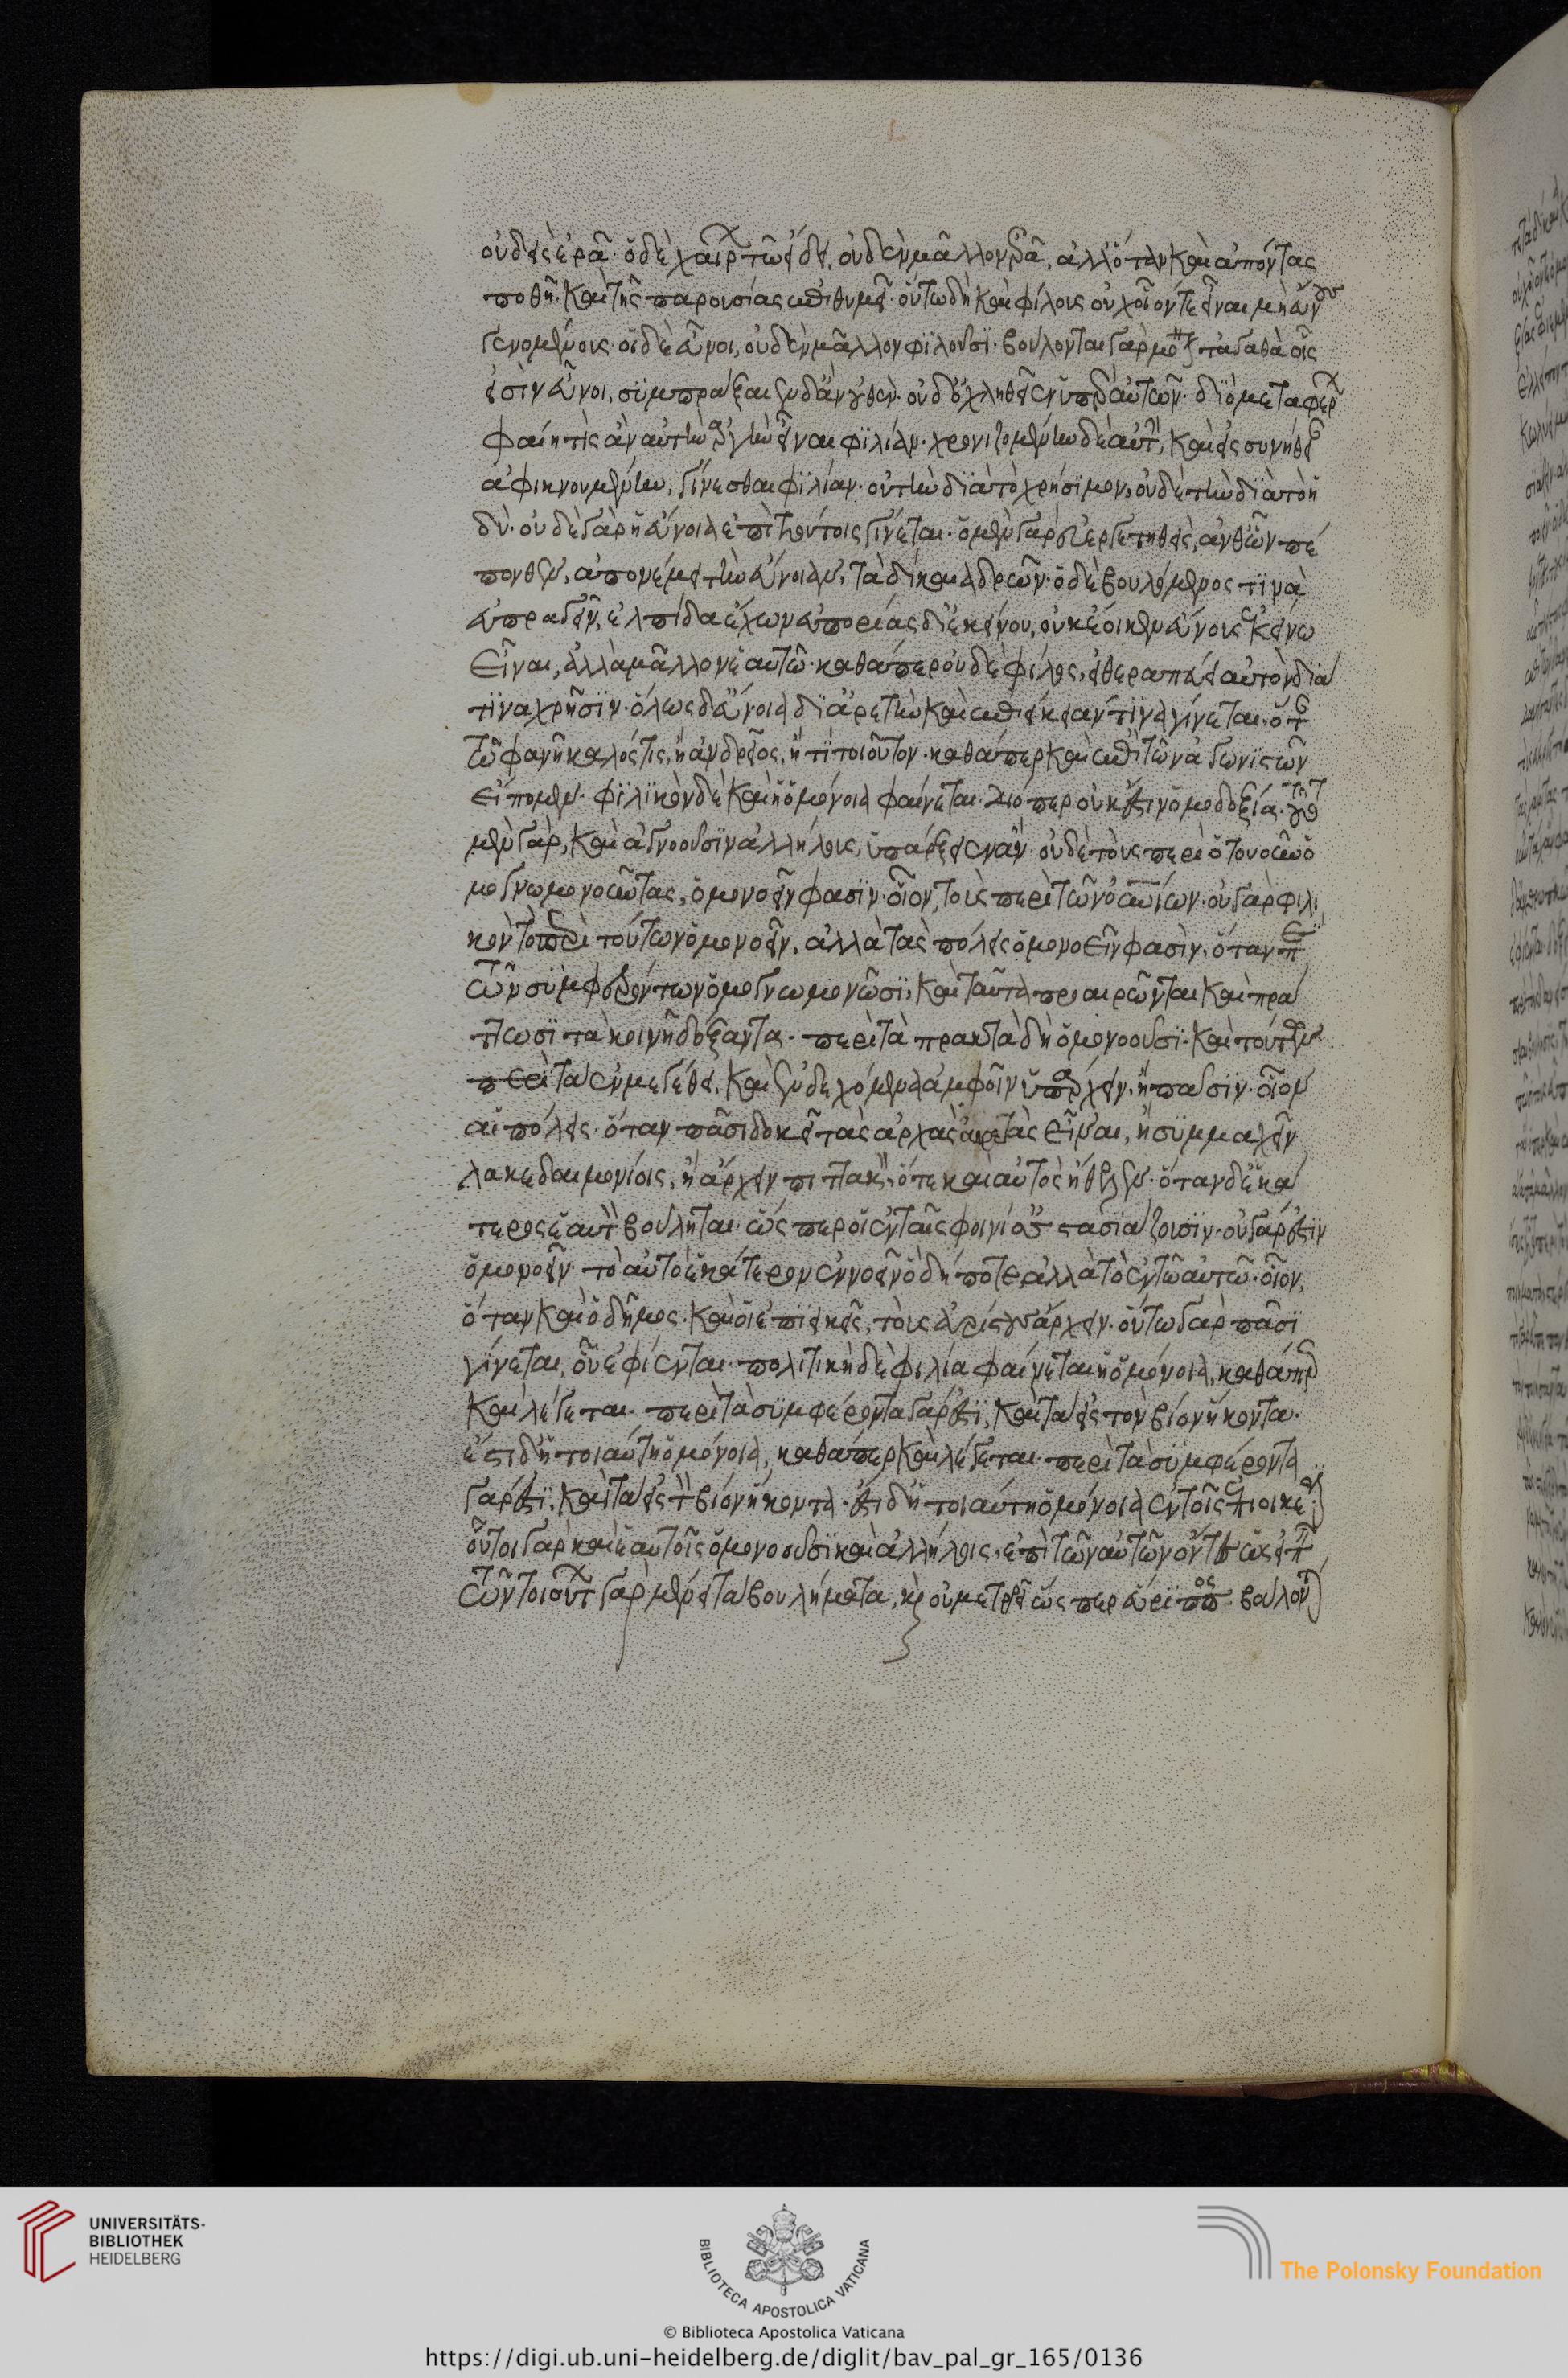 οὐδεὶς ἐρᾶ· ὁ δὲ χαίρων τῶ εἴδει, οὐδὲν μᾶλλον ἐρᾶ, ἀλλ ὅταν καὶ ἀπόντας
ποθῆ· καὶ τῆς παρουσίας ἐπιθυμεῖ· οὕτω δὴ καὶ φίλους οὐχ οἷόντε εἶναι μὴ εὔνους
γενομένους· οἱ δὲ εὖνοι, οὐδὲν μᾶλλον φιλοῦσι· βούλονται γὰρ μόνον τἀγαθὰ οἷς
εἰσὶν εὖνοι, συμπράξαι δ ἂν οὐθὲν· οὐδ ὀχληθεῖεν ὑπὲρ αὐτῶν· διὸ μεταφέρων
φαίη τὶς ἂν αὐτὴν ἀργὴν εἶναι φιλίαν· χρονιζομένην δὲ αὐτὴν, καὶ εἰς συνήθειαν
ἀφικνουμένην, γίνεσθαι φιλίαν· οὐ τὴν διὰ τὸ χρήσιμον, οὐδὲ τὴν διὰ τὸ ἡ
δὺ· οὐδὲ γὰρ ἡ εὔνοια ἐπὶ τούτοις γίνεται· ὁ μὲν γὰρ εὐεργετηθεὶς, ἀνθ ὧν πέ
πονθεν, ἀπονέμει τὴν εὔνοιαν, τὰ δίκαια δρῶν· ὁ δὲ βουλόμενος τινὰ
εὐπραγεῖν, ἐλπίδα ἔχων εὐπορίας δι ἐκείνου, οὐκ ἔοικεν εὔνους ἐκείνω
εἶναι, ἀλλὰ μᾶλλον ἑαυτῶ· καθάπερ οὐδὲ φίλος, εἰ θεραπεύει αὐτὸν διά
τινα χρῆσιν· ὅλως δ εὔνοια δι ἀρετὴν καὶ ἐπιείκειαν τινὰ γίνεται· ὅταν
τῶ φανῆ καλός τις, ἢ ἀνδρεῖος, ἤ τι τοιοῦτον· καθάπερ καὶ ἐπὶ τῶν ἀγωνιστῶν
εἴπομεν· φιλικὸν δὲ καὶ ἡ ὁμόνοια φαίνεται· διόπερ οὐκ ἔστιν ὁμοδοξία· τοῦτο
μὲν γὰρ, καὶ ἀγνοοῦσιν ἀλλήλους, ὑπάρξειεν ἂν· οὐδὲ τοὺς περὶ ὁτουοῦν ὁ
μογνωμονοῦντας, ὁμονοεῖν φασὶν· οἷον, τοὺς περὶ τῶν οὐρανίων· οὐ γὰρ φιλι
κὸν τὸ περὶ τούτων ὁμονοεῖν, ἀλλὰ τὰς πόλεις ὁμονοεῖν φασὶν, ὅταν περὶ
τῶν συμφερόντων ὁμογνωμονῶσι, καὶ ταὐτὰ προαιρῶνται καὶ πρά
ττωσι τὰ κοινῆ δόξαντα· περὶ τὰ πρακτὰ δὴ ὁμονοοῦσι· καὶ τούτων
περὶ τὰ ἐν μεγέθει, καὶ ἐνδεχόμενα ἀμφοῖν ὑπάρχειν, ἢ πᾶσιν· οἷον
αἱ πόλεις· ὅταν πᾶσι δοκεῖ τὰς ἀρχὰς αἱρετὰς εἶναι, ἢ συμμαχεῖν
λακεδαιμονίοις, ἢ ἄρχειν πιττακὸν, ὅτε καὶ αὐτὸς ἤθελεν· ὅταν δ ἑκά
τερος ἑαυτὸν βούληται· ὥσπερ οἱ ἐν ταῖς φοινίσσαις στασιάζουσιν· οὐ γάρ ἐστιν
ὁμονοεῖν· τὸ αὐτὸ ἑκάτερον ἐννοεῖν ὁδήποτε, ἀλλὰ τὸ ἐν τῶ αὐτῶ· οἷον,
ὅταν καὶ ὁ δῆμος· καὶ οἱ ἐπιεικεῖς, τοὺς ἀρίστους ἄρχειν· οὕτω γὰρ πᾶσι
γίνεται, οὗ ἐφίενται· πολιτικὴ δὲ φιλία φαίνεται ἡ ὁμόνοια, καθάπερ
καὶ λέγεται· περὶ τὰ συμφέροντα γάρ ἐστι, καὶ τὰ εἰς τὸν βίον ἥκοντα·
ἔστι δ ἡ τοιαύτη ὁμόνοια, καθάπερ καὶ λέγεται· περὶ τὰ συμφέροντα
γάρ ἐστι, καὶ τὰ εἰς τὸν βίον ἥκοντα· ἔστι δ ἡ τοιαύτη ὁμόνοια ἐν τοῖς ἐπιεικέσιν
οὗτοι γὰρ καὶ ἑαυτοῖς ὁμονοοῦσι καὶ ἀλλήλοις, ἐπὶ τῶν αὐτῶν ὄντες ὡς εἰπεῖν
τῶν τοιούτων γὰρ μένει τὰ βουλήματα, καὶ οὐ μεταρρεῖ ὥσπερ εὔριπος· βούλονται
UNIVERSITÄTS-
BIBLIOTHEK
HEIDELBERG
BIBLIOTECA APOSTOLICA VATICANA
The Polonsky Foundation
© Biblioteca Apostolica Vaticana
https://digi.ub.uni-heidelberg.de/diglit/bav_pal_gr_165/0136